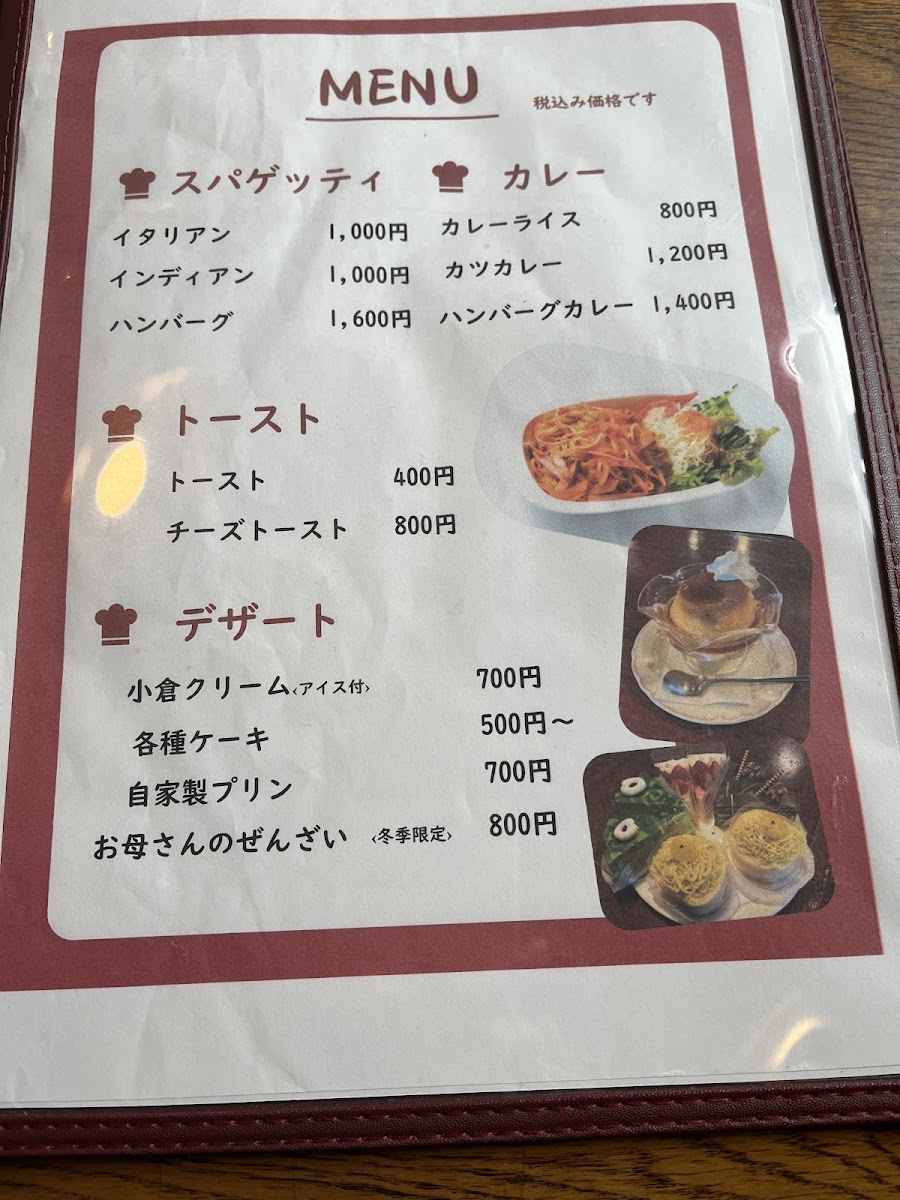 MENU
税込み価格です
スパゲッティ
イタリアン 1,000円
インディアン 1,000円
ハンバーグ 1,600円
カレー
カレーライス 800円
カツカレー 1,200円
ハンバーグカレー 1,400円
トースト
トースト 400円
チーズトースト 800円
デザート
小倉クリーム〈アイス付〉 700円
各種ケーキ 500円〜
自家製プリン 700円
お母さんのぜんざい 〈冬季限定〉 800円